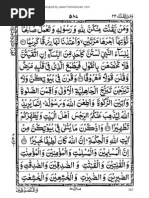 ٥٨٤
وَمَنْ يَّقْنُتْ مِنْكُنَّ لِلّٰهِ وَرَسُوْلِهٖ وَتَعْمَلْ صَالِحًا
نُّؤْتِهَآ اَجْرَهَا مَرَّتَيْنِ وَاَعْتَدْنَا لَهَا رِزْقًا كَرِيْمًا
يٰنِسَآءَ النَّبِيِّ لَسْتُنَّ كَاَحَدٍ مِّنَ النِّسَآءِ اِنِ اتَّقَيْتُنَّ
فَلَا تَخْضَعْنَ بِالْقَوْلِ فَيَطْمَعَ الَّذِيْ فِيْ قَلْبِهٖ مَرَضٌ
وَّقُلْنَ قَوْلًا مَّعْرُوْفًا وَقَرْنَ فِيْ بُيُوْتِكُنَّ وَلَا تَبَرَّجْنَ
تَبَرُّجَ الْجَاهِلِيَّةِ الْاُوْلٰى وَاَقِمْنَ الصَّلٰوةَ وَاٰتِيْنَ
الزَّكٰوةَ وَاَطِعْنَ اللّٰهَ وَرَسُوْلَهٗ اِنَّمَا يُرِيْدُ اللّٰهُ
لِيُذْهِبَ عَنْكُمُ الرِّجْسَ اَهْلَ الْبَيْتِ وَيُطَهِّرَكُمْ
تَطْهِيْرًا وَاذْكُرْنَ مَا يُتْلٰى فِيْ بُيُوْتِكُنَّ مِنْ
اٰيٰتِ اللّٰهِ وَالْحِكْمَةِ اِنَّ اللّٰهَ كَانَ لَطِيْفًا خَبِيْرًا
اِنَّ الْمُسْلِمِيْنَ وَالْمُسْلِمٰتِ وَالْمُؤْمِنِيْنَ وَالْمُؤْمِنٰتِ
وَالْقٰنِتِيْنَ وَالْقٰنِتٰتِ وَالصّٰدِقِيْنَ وَالصّٰدِقٰتِ
وَالصّٰبِرِيْنَ وَالصّٰبِرٰتِ وَالْخٰشِعِيْنَ وَالْخٰشِعٰتِ